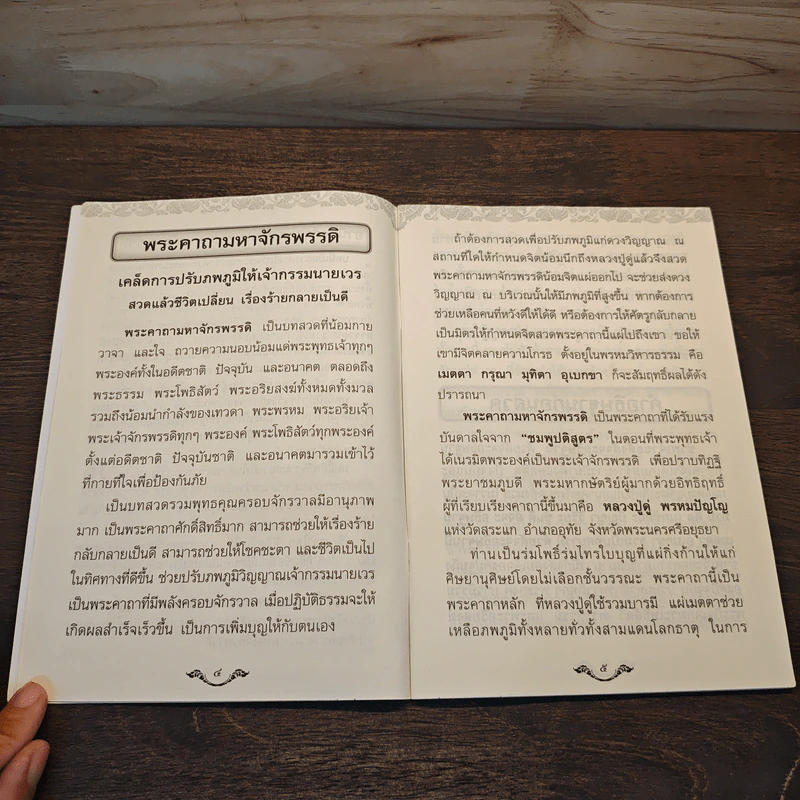 พระคาถามหาจักรพรรดิ
เคล็ดการปรับภพภูมิให้เจ้ากรรมนายเวร
สวดแล้วชีวิตเปลี่ยน เรื่องร้ายกลายเป็นดี
พระคาถามหาจักรพรรดิ เป็นบทสวดที่น้อมกาย
วาจา และใจ ถวายความนอบน้อมแด่พระพุทธเจ้าทุกๆ
พระองค์ทั้งในอดีตชาติ ปัจจุบัน และอนาคต ตลอดถึง
พระธรรม พระโพธิสัตว์ พระอริยสงฆ์ทั้งหมดทั้งมวล
รวมถึงน้อมนำกำลังของเทวดา พระพรหม พระอริยเจ้า
พระเจ้าจักรพรรดิทุกๆ พระองค์ พระโพธิสัตว์ทุกพระองค์
ตั้งแต่อดีตชาติ ปัจจุบันชาติ และอนาคตมารวมเข้าไว้
ที่กายที่ใจเพื่อป้องกันภัย
เป็นบทสวดรวมพุทธคุณครอบจักรวาลมีอานุภาพ
มาก เป็นพระคาถาศักดิ์สิทธิ์มาก สามารถช่วยให้เรื่องร้าย
กลับกลายเป็นดี สามารถช่วยให้โชคชะตา และชีวิตเป็นไป
ในทิศทางที่ดีขึ้น ช่วยปรับภพภูมิวิญญาณเจ้ากรรมนายเวร
เป็นพระคาถาที่มีพลังครอบจักรวาล เมื่อปฏิบัติธรรมจะให้
เกิดผลสำเร็จเร็วขึ้น เป็นการเพิ่มบุญให้กับตนเอง
๔
ถ้าต้องการสวดเพื่อปรับภพภูมิแก่ดวงวิญญาณ ณ
สถานที่ใดให้กำหนดจิตน้อมนึกถึงหลวงปู่ดู่แล้วจึงสวด
พระคาถามหาจักรพรรดิน้อมจิตแผ่ออกไป จะช่วยส่งดวง
วิญญาณ ณ บริเวณนั้นให้มีภพภูมิที่สูงขึ้น หากต้องการ
ช่วยเหลือคนที่หวังดีให้ได้ดี หรือต้องการให้ศัตรูกลับกลาย
เป็นมิตรให้กำหนดจิตสวดพระคาถานี้แผ่ไปถึงเขา ขอให้
เขามีจิตคลายความโกรธ ตั้งอยู่ในพรหมวิหารธรรม คือ
เมตตา กรุณา มุทิตา อุเบกขา ก็จะสัมฤทธิ์ผลได้ดัง
ปรารถนา
พระคาถามหาจักรพรรดิ เป็นพระคาถาที่ได้รับแรง
บันดาลใจจาก “ชมพูปติสูตร” ในตอนที่พระพุทธเจ้า
ได้เนรมิตพระองค์เป็นพระเจ้าจักรพรรดิ เพื่อปราบทิฏฐิ
พระยาชมภูบดี พระมหากษัตริย์ผู้มากด้วยอิทธิฤทธิ์
ผู้ที่เรียบเรียงคาถานี้ขึ้นมาคือ หลวงปู่ดู่ พรหมปัญโญ
แห่งวัดสระแก อำเภออุทัย จังหวัดพระนครศรีอยุธยา
ท่านเป็นร่มโพธิ์ร่มไทรใบบุญที่แผ่กิ่งก้านให้แก่
ศิษยานุศิษย์โดยไม่เลือกชั้นวรรณะ พระคาถานี้เป็น
พระคาถาหลัก ที่หลวงปู่ดู่ใช้รวมบารมี แผ่เมตตาช่วย
เหลือภพภูมิทั้งหลายทั่วทั้งสามแดนโลกธาตุ ในการ
๕